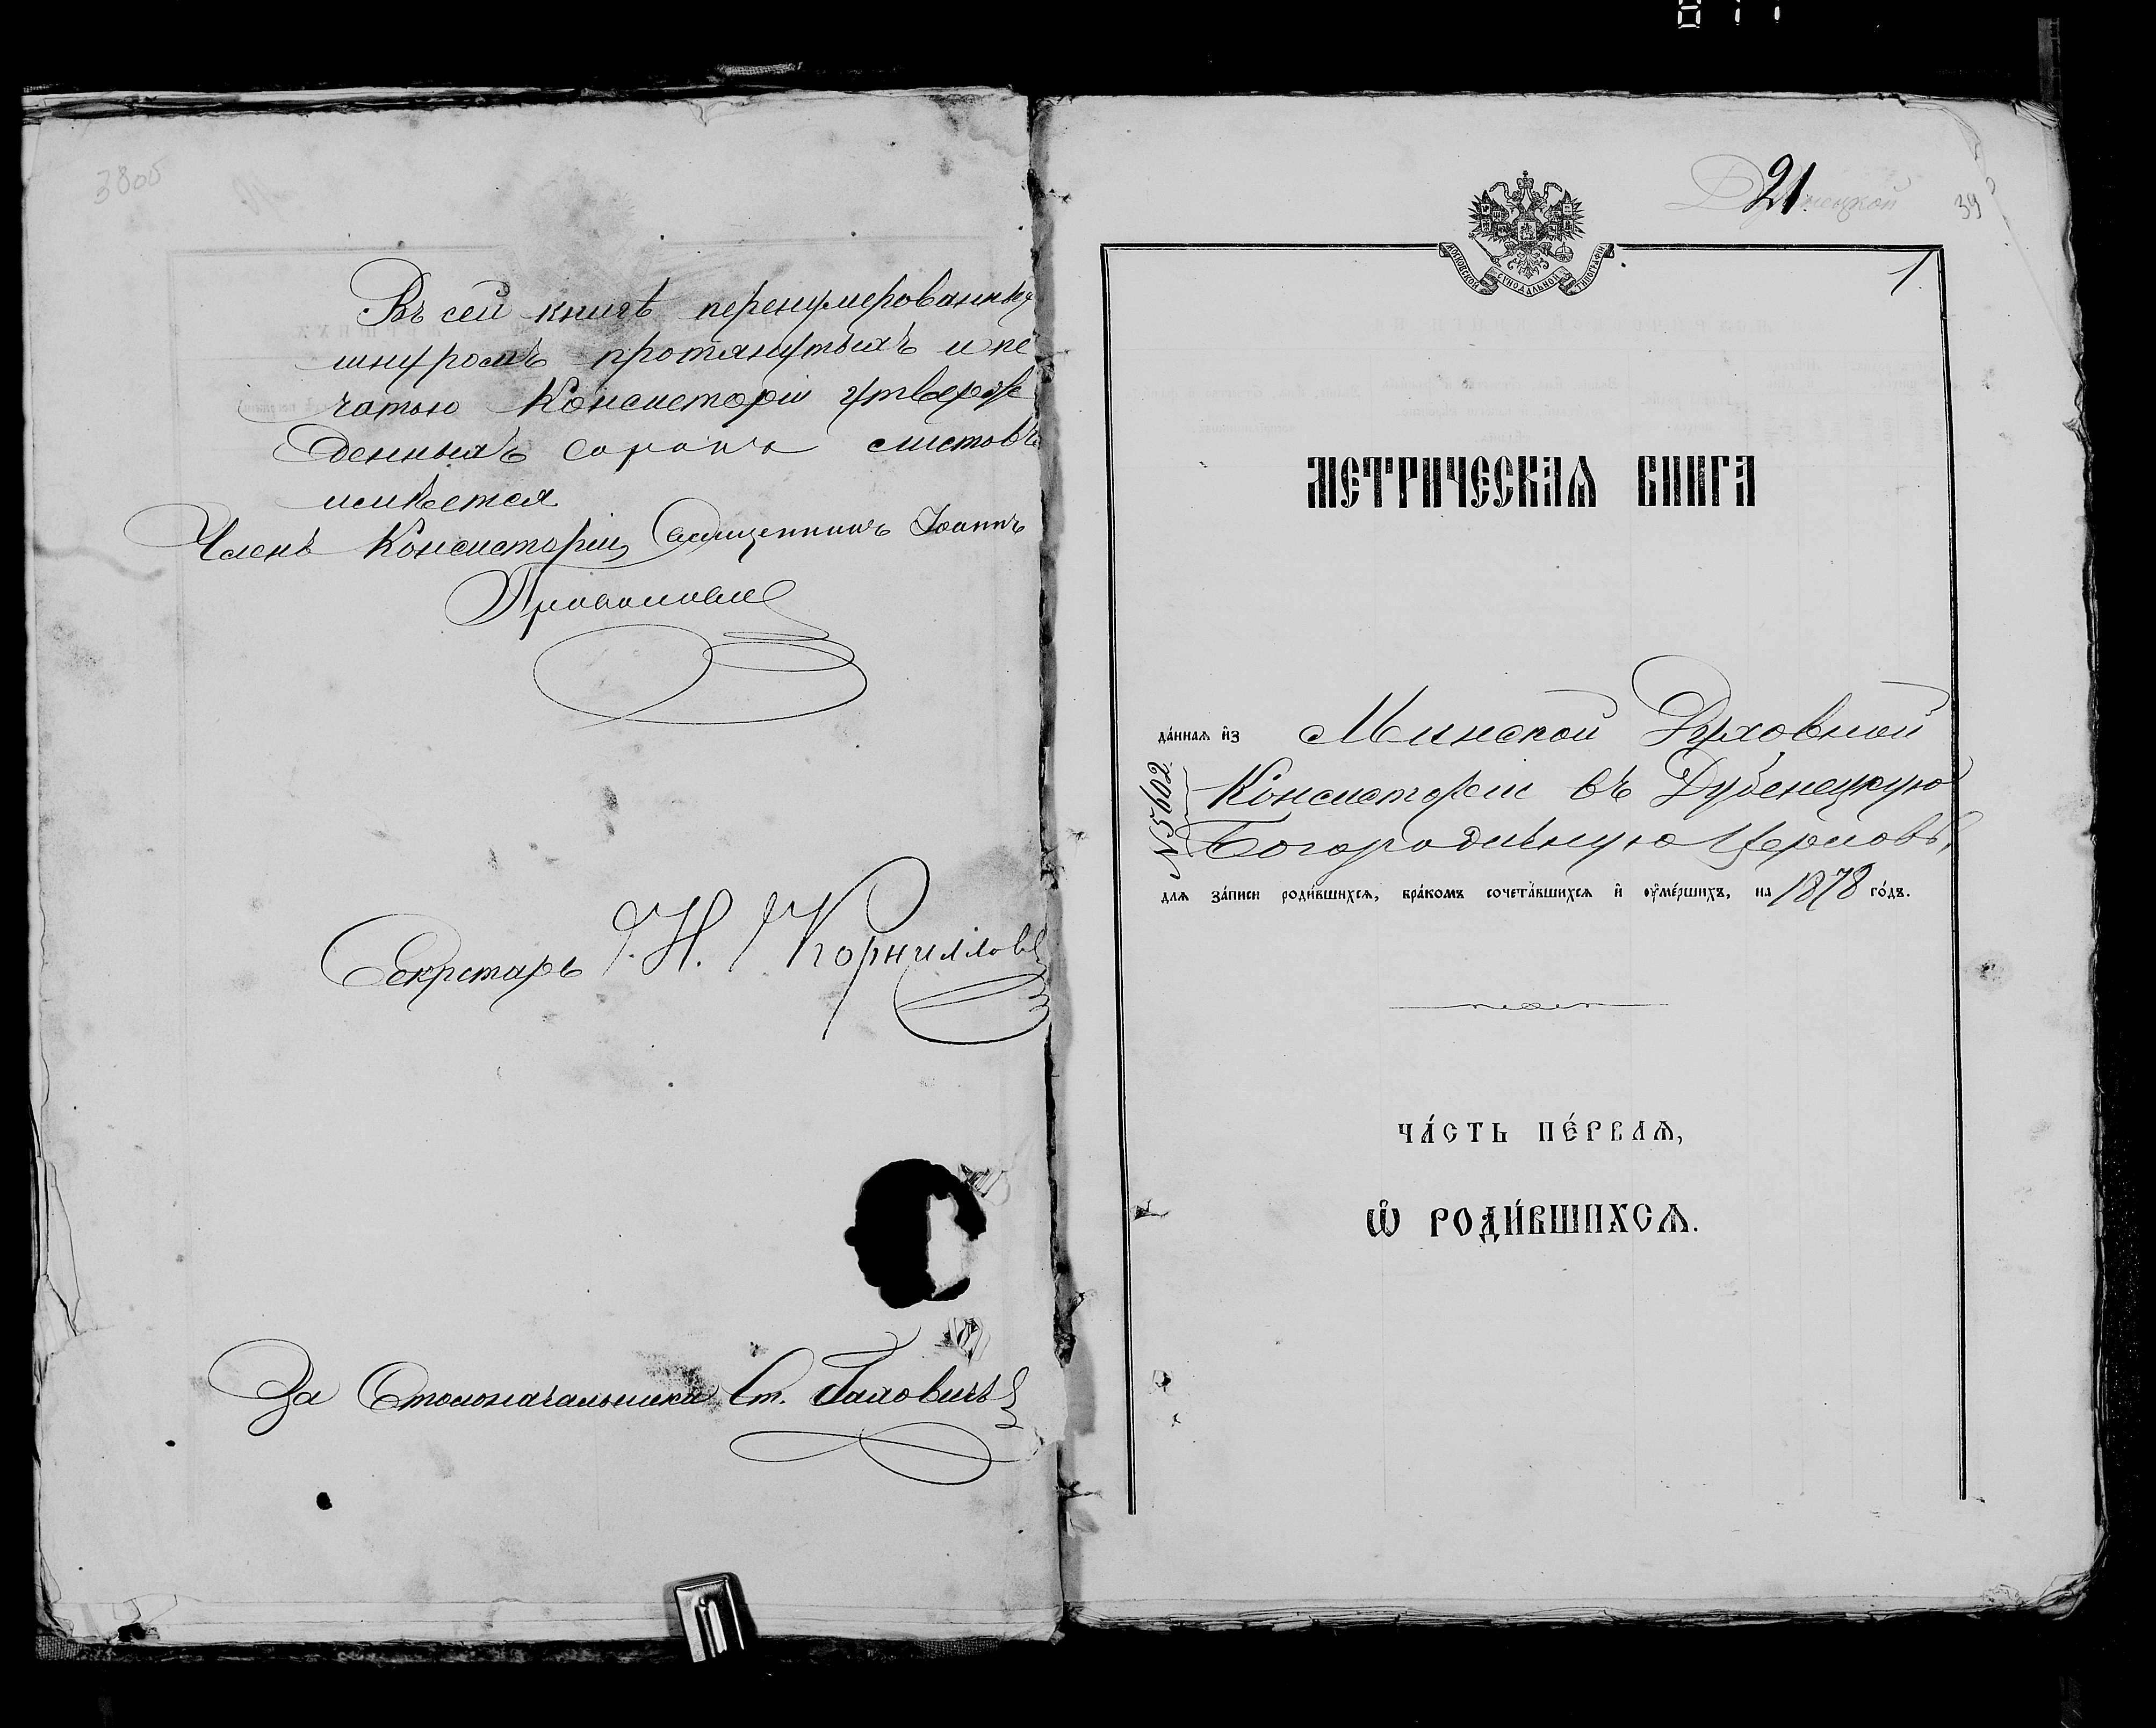 3805
Въ сей книгѣ перенумерованныхъ
шнуромъ протянутыхъ и пе
чатью Консисторіи утверж
денныхъ сорокъ листовъ
имѣется
Членъ Консисторіи, Священникъ Іоаннъ
Секретарь Н. Корниллов
За Столоначальника Ст.
21.
39
1
МОСКОВСКОЙ СѴНОДАЛЬНОЙ ТИПОГРАФІИ
МЕТРИЧЕСКАѦ КНИГА
да́ннаѧ и҆з Минской Духовной
№ 5602
Консисторіи въ Дубенецкую
Богородичную Церковь,
длѧ за́писи роди́вшихсѧ, бра́комъ сочета́вшихсѧ и҆ ᲂу҆ме́ршихъ, на 1878 го́дъ.
ЧА́СТЬ ПЕ́РВАѦ,
Ѽ РОДИ́ВШИХСѦ.